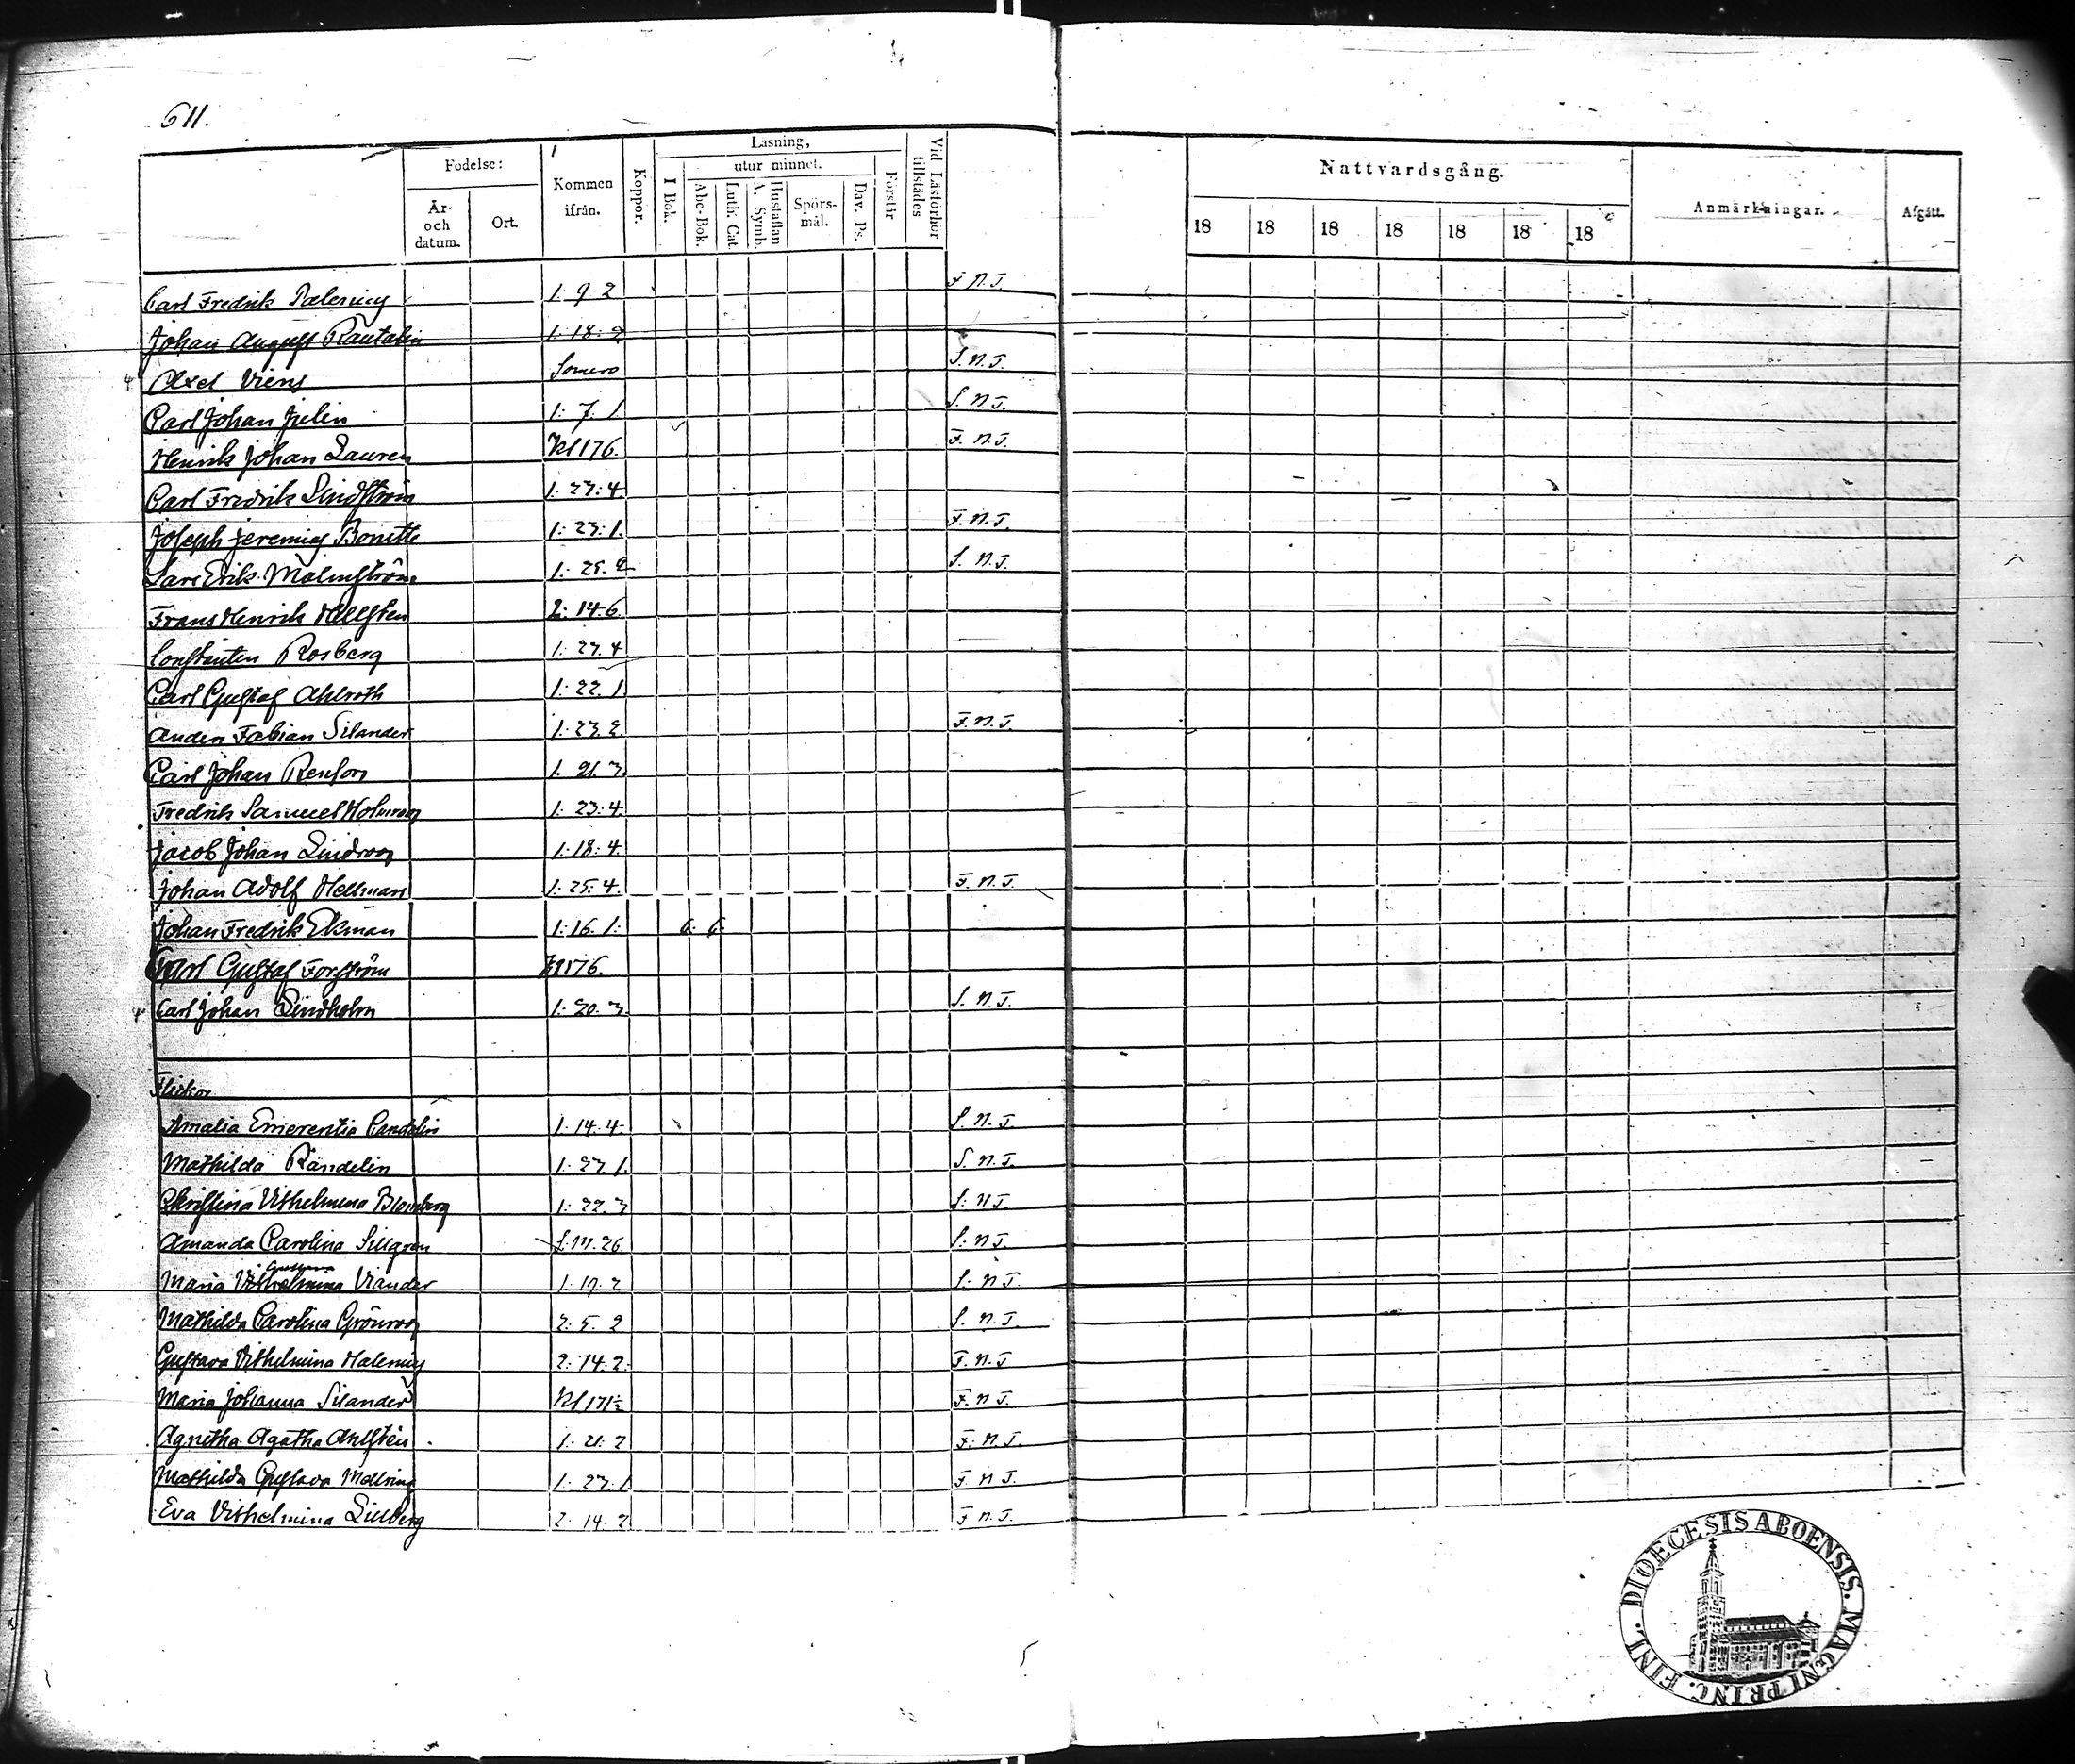 611.
Födelse:
År och datum.
Ort.
Kommen ifrån.
Koppor.
Läsning,
I Bok.
utur minnet.
Abc-Bok.
Luth. Cat.
Hustaflan A. Symb.
Spörsmål.
Dav. Ps.
Förstår
Vid Läsförhör tillstädes
Nattvardsgång.
18 18 18 18 18 18 18
Anmärkningar.
Afgått.
Carl Fredrik 1. 9. 2 F N. J.
Johan August Rautalin 1. 18. 2
Axel Viens Somero S. N. J.
Carl Johan Julin 1. 7. 1 S. N. J.
Henrik Johan Lauren Kl 176. F. N. J.
Carl Fredrik Lindström 1. 27. 4.
Joseph Jeremias 1. 23. 1. F. N. J.
Lars Erik Malmström 1. 25. 2 S. N. J.
Frans Henrik Hellsten 2. 14. 6
Constantin Rosberg 1. 27. 4
Carl Gustaf Ahlroth 1. 22. 1
Anders Fabian Silander 1. 23. 2 F. N. J.
Carl Johan Renfors 1. 21. 3.
Fredrik Samuel Holmroos 1. 23. 4.
Jacob Johan Lindroos 1. 18. 4.
Johan Adolf Hellman 1. 25. 4. F. N. J.
Johan Fredrik Ekman 1. 16. 1. 6. 6.
Carl Gustaf Forström 176.
Carl Johan Lindholm 1. 20. 3 S. N. J.
Flickor
Amalia Emerentia Candelin 1. 14. 4. S. N. J.
Mathilda Randelin 1. 27. 1. S. N. J.
Christina Vilhelmina Blomberg 1. 22. 3 S. N J.
Amanda Carolina Sillgren 26. S. N J.
Gustava
Maria Vilhelmina Viander 1. 17. 2 S. N J.
Mathilda Carolina Grönroos 2. 5. 2 S. N. J.
Gustava Vilhelmina Halenius 2. 14. 2. F. N. J
Maria Johanna Silander Kl 171½ F. N J.
Agnetha Agatha Ahlsten 1. 21. 2 F. N J.
Mathilda Gustava Mellring 1. 27. 1 F N J.
Eva Vilhelmina Lillberg 2. 14. 2 F N. J.
DIOECESIS ABOENSIS. MAGNI PRINC. FINL.